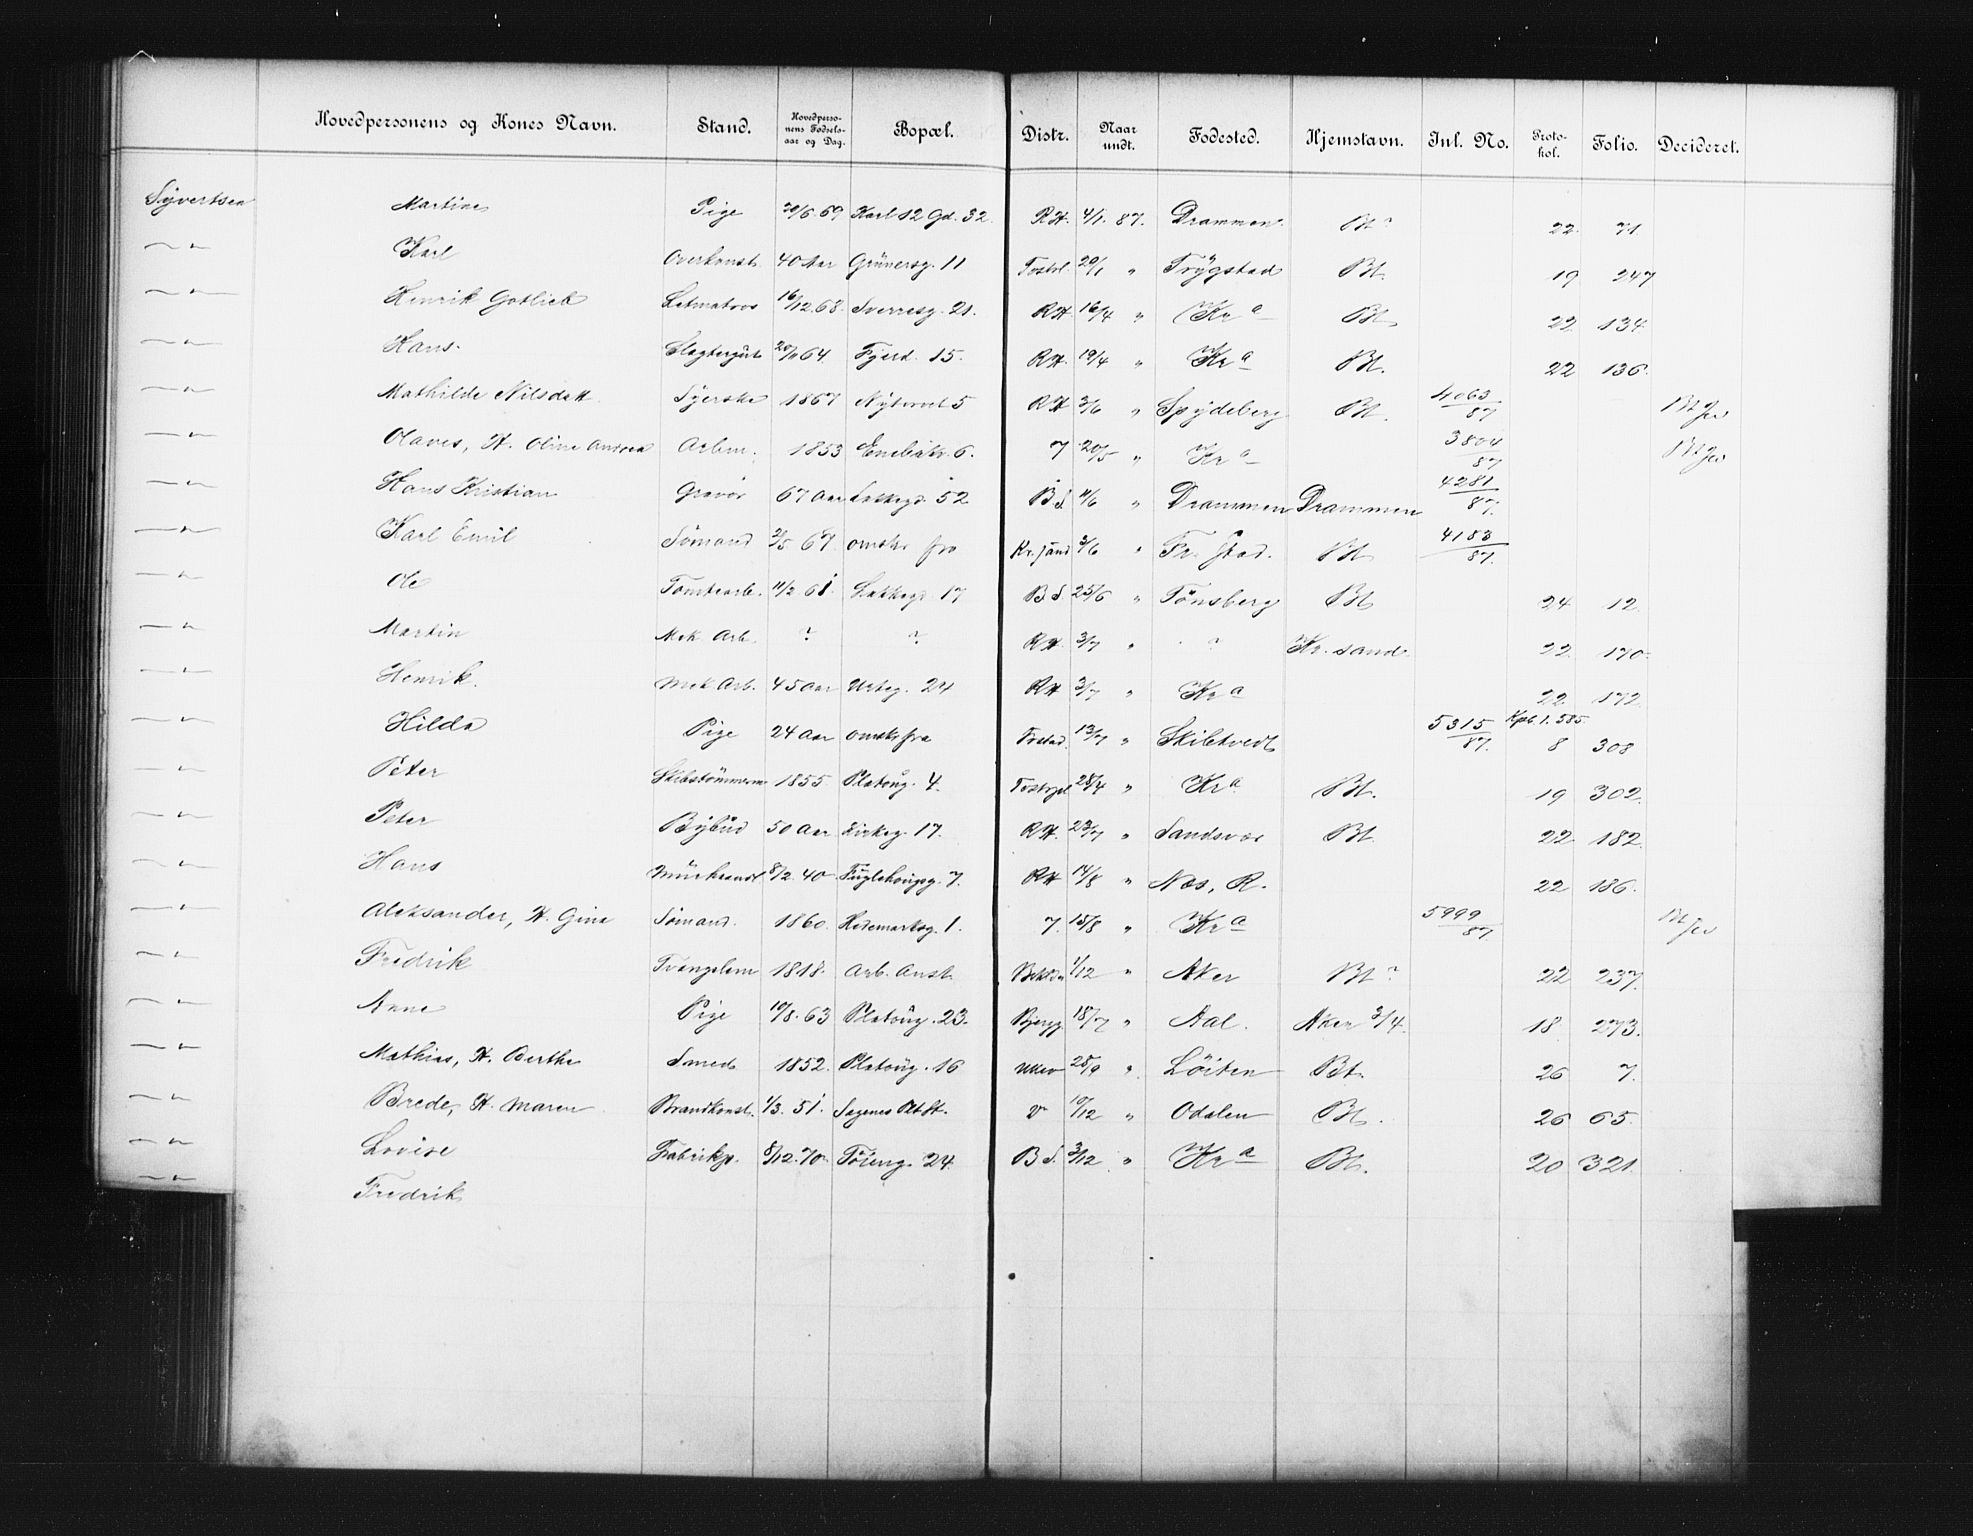 Hovedpersonens og Kones Navn. Stand. Hovedpersonens Fødselsaar og Dag. Bopæl. Distr. Naar undt. Fødested. Hjemstavn. Inl. No. Protokol. Folio. Decideret.
Syvertsen Martine Pige 20/6 69 Karl 12 Gd. 32. RH. 4/1. 87. Drammen. Bt ? 22. 71.
—"— Karl Overkonst. 40 Aar Grünersg. 11 20/1 " Trygstad Bt. 19 247
—"— Henrik Gotlieb Letmatros 16/12 68. Sverresg. 21. RH 16/4 " Kra Bt. 22 134
—"— Hans. 64. Fjerd. 15. RH. 19/4 " Kra Bt. 22 136.
—"— Mathilde Nilsdatt. Syerske 1867 Nytorvet 5 RH 3/6 " Spydeberg Bt. 4063/87 Bt
—"— Olaves, H. Oline Andrea Arbm. 1853 6. 7 20/5 " Kra 3804/87 Bt
—"— Hans Kristian Gravør 67 Aar Lakkegd. 52 B.d 11/6 " Drammen Drammen 4281/87.
—"— Karl Emil Sømand 2/5 67. omstr. fra Kr.sand 3/6 " Fr. stad. Bt 4183/87.
—"— Ole Tomtearb. 11/2 61 Lakkegd. 17 B.d 25/6 " Tønsberg Bt 24 12.
—"— Martin Mek Arb. ? ? RH. 3/7 " ? Kr. sand. 22. 170.
—"— Henrik. Mek Arb. 45 Aar Urteg. 24 RH 3/7 " Kra 22. 172.
—"— Hilda Pige 24 Aar omstr fra 13/7 " Skibtvedt 5315/87. Kpb. 1. 585. 8 308
—"— Peter Skibstømmerm 1855 Platoug. 4. 28/4 " Kra Bt. 19 302.
—"— Peter Bybud 50 Aar Kirkeg. 17. RH. 23/7 " Sandsvær Bt. 22 182.
—"— Hans 8/2. 40. Fuglehougsg. 7. RH 14/8 " Næs, R. 22 186.
—"— Aleksander, H. Gina Sømand. 1860. Hedemarksg. 1. 7. 15/8 " Kra 5999/87. Bt
—"— Fredrik Tvangslem 1818. Arb. Anst. 1/12 " Aker Bt ? 22 237.
—"— Anne Pige 10/8. 63 Platoug. 23. 18/7 " Aal. Aker 3/4. 18 273.
—"— Mathias, H. Berthe Smed 1852. Platoug. 16 28/9 " Löiten Bt. 26 7.
—"— Brede, H. Maren Brandkonst. 1/3. 51. Sagenes 10/12 " Odalen Bt. 26 65.
—"— Lovise Fabrikp. 8/12. 70. Töieng. 24. B d. 3/12 " Kra Bt. 20 321.
—"— Fredrik